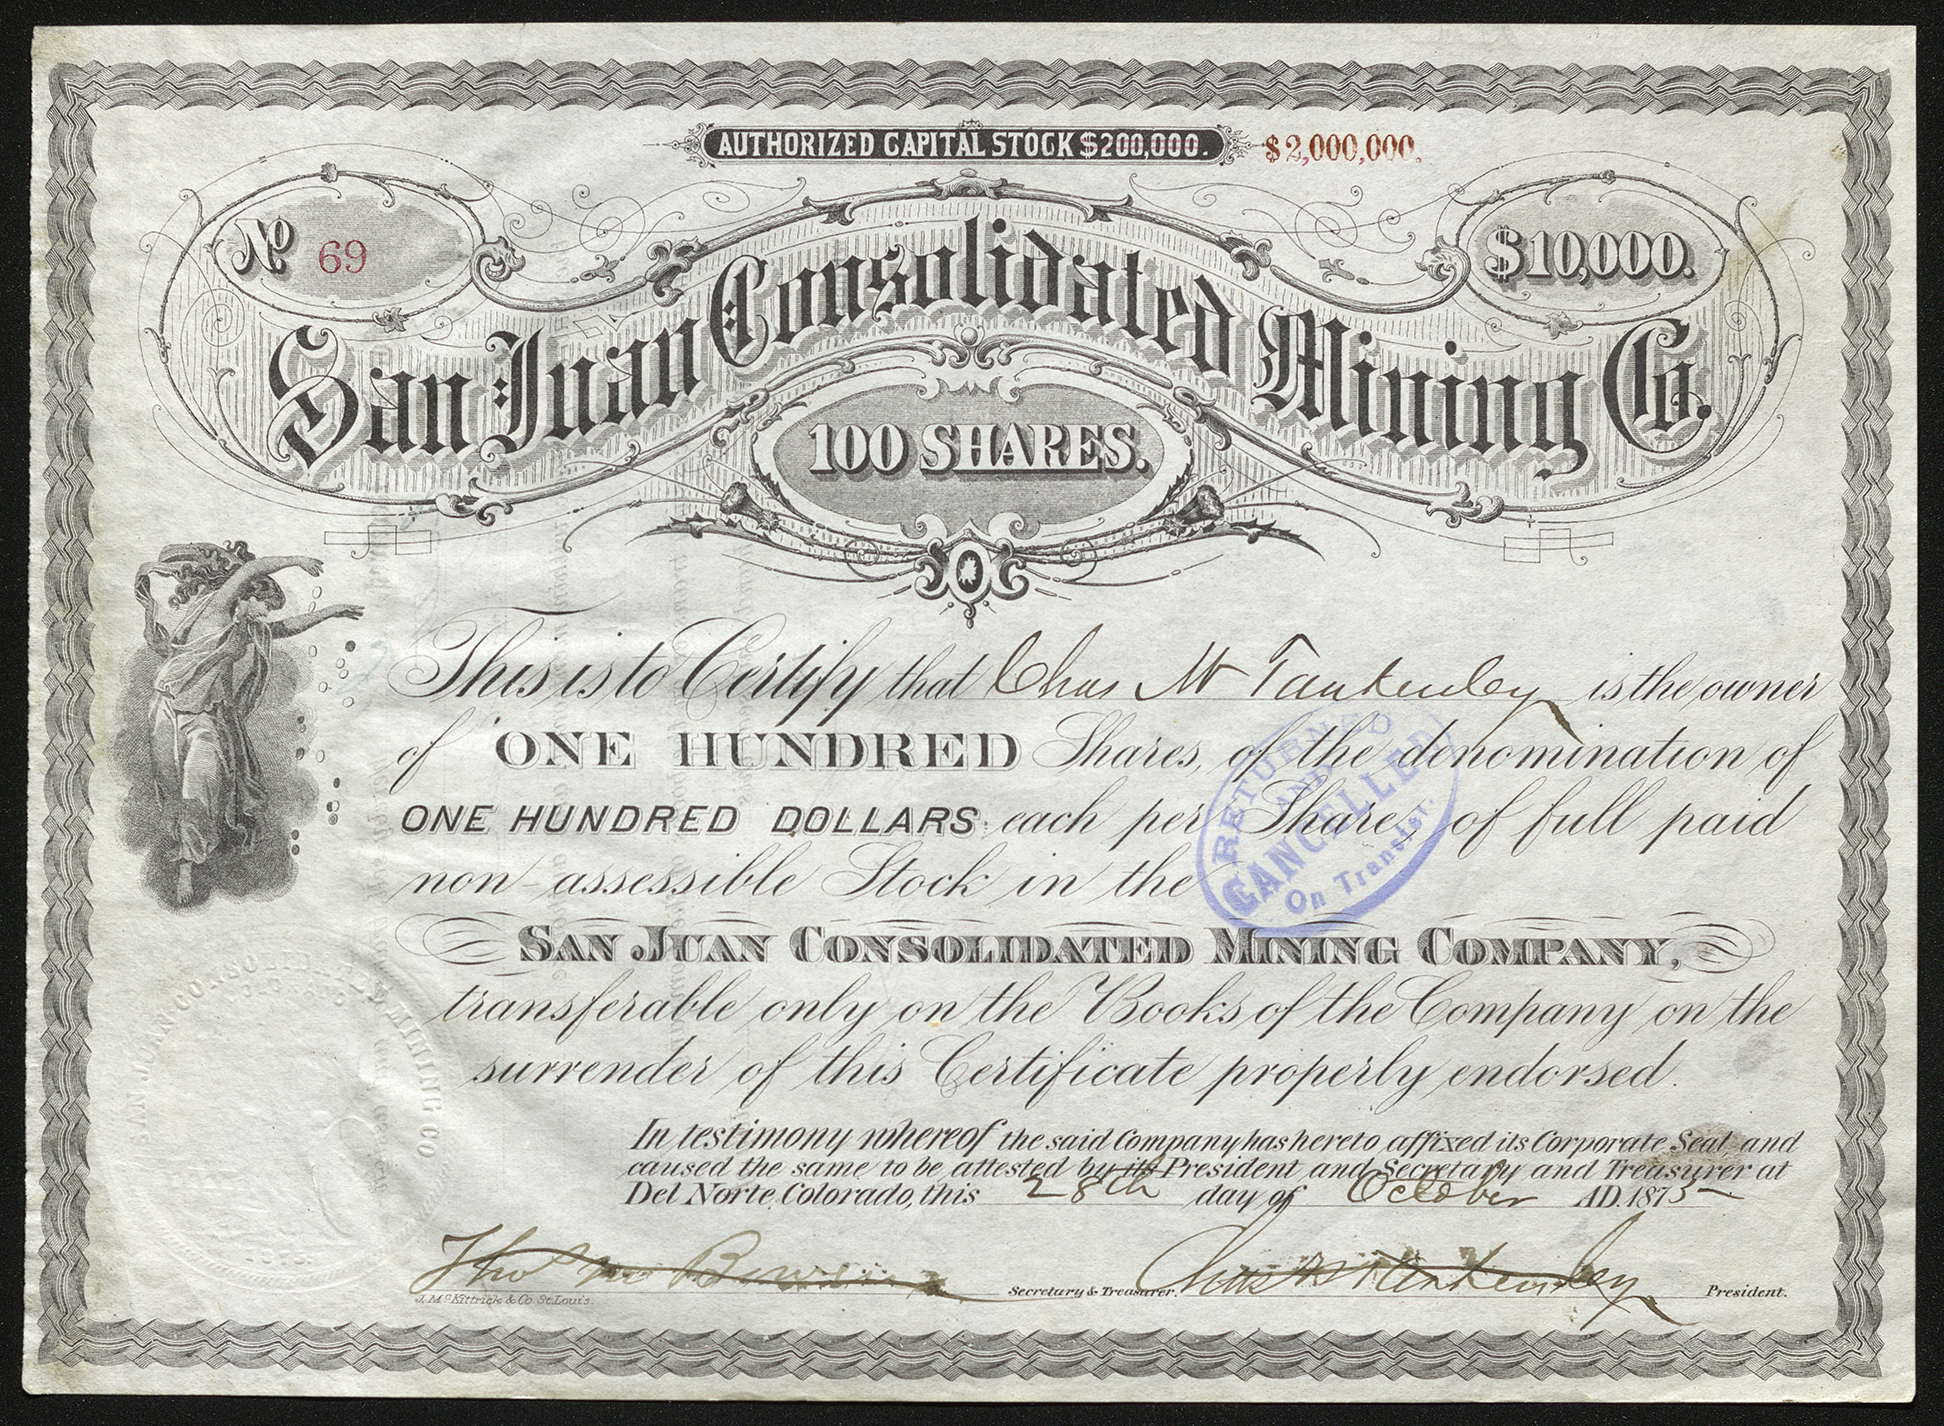 AUTHORIZED CAPITAL STOCK $200,000. $2,000,000.
No 69
$10,000.
San Juan Consolidated Mining Co.
100 SHARES.
This is to Certify that Chas M Tankersley is the owner
of ONE HUNDRED Shares, of the denomination of
ONE HUNDRED DOLLARS each per Share, of full paid
non-assessible Stock in the
RETURNED
AND
CANCELLED
On Transfer.
SAN JUAN CONSOLIDATED MINING COMPANY,
transferable only on the Books of the Company on the
surrender of this Certificate properly endorsed.
In testimony whereof the said Company has hereto affixed its Corporate Seal and
caused the same to be attested by its President and Secretary and Treasurer at
Del Norte, Colorado, this 28th day of October AD. 1875
SAN JUAN CONSOLIDATED MINING CO
Thos M Bowen Secretary & Treasurer. President.
J. McKittrick & Co. St. Louis.